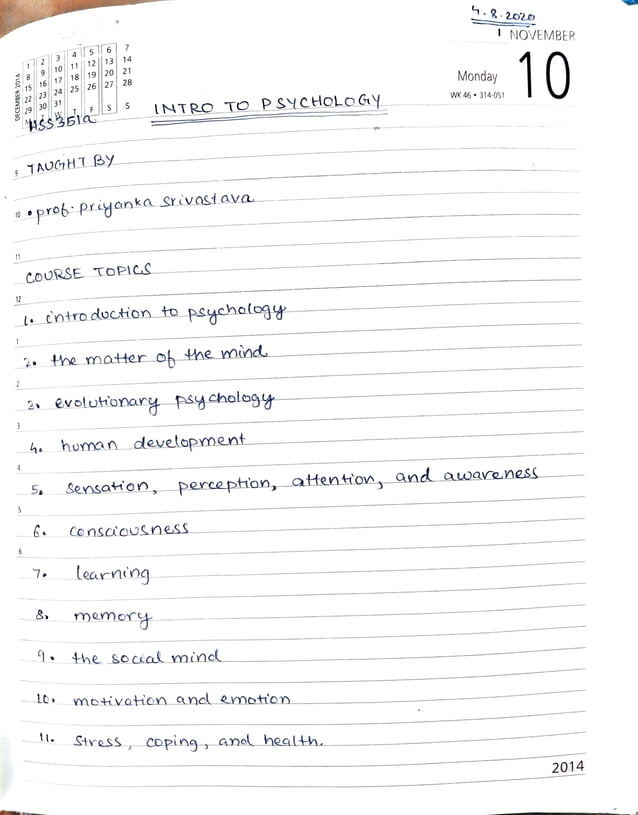 4.8.2020
1 NOVEMBER
Monday 10
WK 46 • 314-051
DECEMBER 2014
1 2 3 4 5 6 7
8 9 10 11 12 13 14
15 16 17 18 19 20 21
22 23 24 25 26 27 28
29 30 31
T F S S
HSS351a
INTRO TO PSYCHOLOGY
9 TAUGHT BY
10 • prof. priyanka srivastava
11
COURSE TOPICS
12
1. introduction to psychology
1
2. the matter of the mind
2
3. evolutionary psychology
3
4. human development
4
5. sensation, perception, attention, and awareness
5
6. consciousness
6
7. learning
8. memory
9. the social mind
10. motivation and emotion
11. stress, coping, and health.
2014